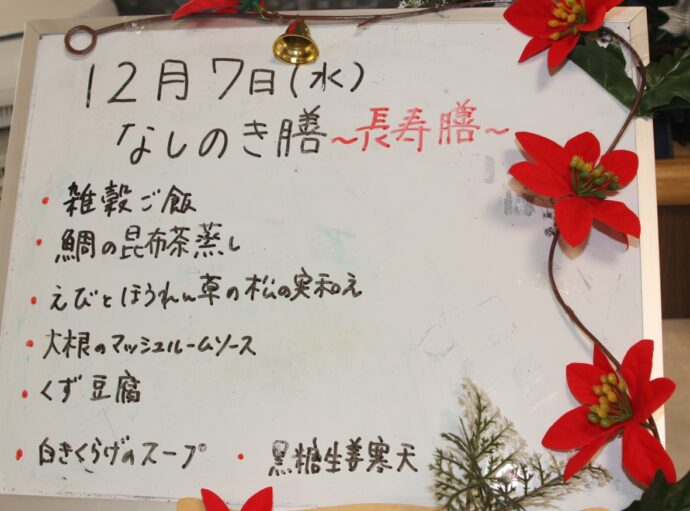 12月7日(水)
なしのき膳 ～長寿膳～
・雑穀ご飯
・鯛の昆布茶蒸し
・えびとほうれん草の松の実和え
・大根のマッシュルームソース
・くず豆腐
・白きくらげのスープ ・黒糖生姜寒天